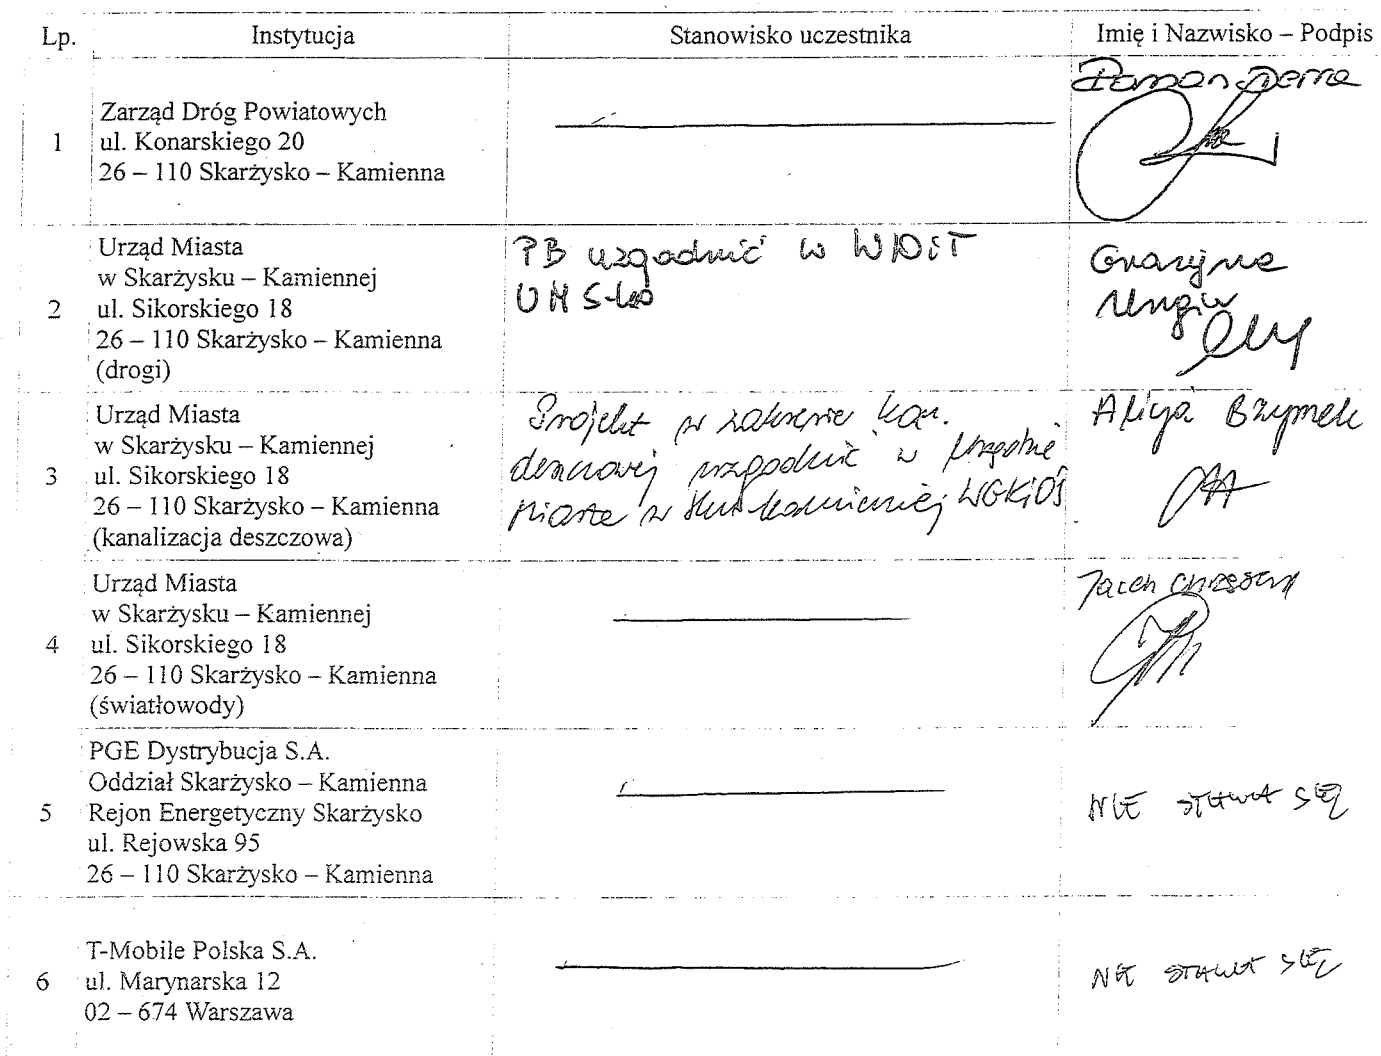 Lp. Instytucja Stanowisko uczestnika Imię i Nazwisko – Podpis
1
Zarząd Dróg Powiatowych
ul. Konarskiego 20
26 – 110 Skarżysko – Kamienna
2
Urząd Miasta
w Skarżysku – Kamiennej
ul. Sikorskiego 18
26 – 110 Skarżysko – Kamienna
(drogi)
PB uzgodnić w WDiT
UM S-ko
Grażyna
3
Urząd Miasta
w Skarżysku – Kamiennej
ul. Sikorskiego 18
26 – 110 Skarżysko – Kamienna
(kanalizacja deszczowa)
Projekt w zakresie kan.
deszczowej uzgodnić w Urzędzie
Miasta w Kamiennej WGKiOŚ
Alicja Brzymek
4
Urząd Miasta
w Skarżysku – Kamiennej
ul. Sikorskiego 18
26 – 110 Skarżysko – Kamienna
(światłowody)
Jacek
5
PGE Dystrybucja S.A.
Oddział Skarżysko – Kamienna
Rejon Energetyczny Skarżysko
ul. Rejowska 95
26 – 110 Skarżysko – Kamienna
NIE STAWIŁ SIĘ
6
T-Mobile Polska S.A.
ul. Marynarska 12
02 – 674 Warszawa
NIE STAWIŁ SIĘ